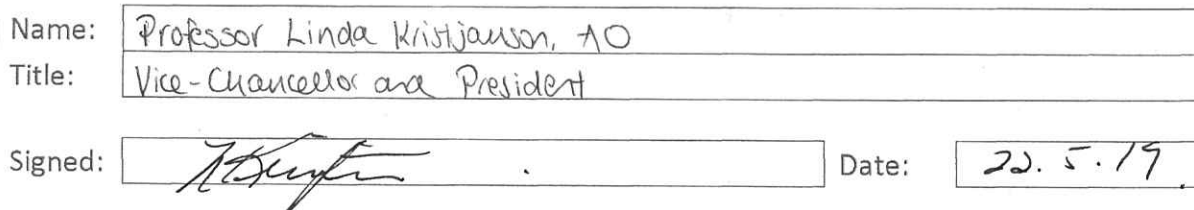 Name: Professor Linda Kristjanson, AO
Title: Vice-Chancellor and President
Signed: Date: 22.5.19